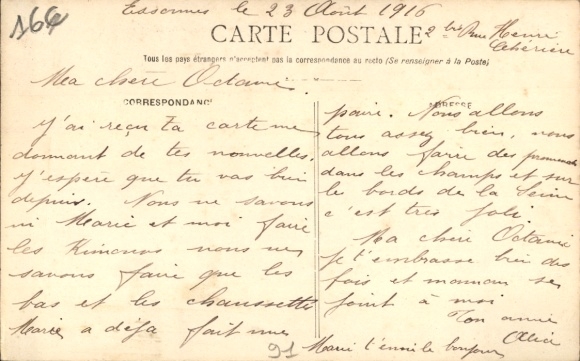 166
Essonnes le 23 Août 1916
2 bis Rue Henri
CARTE POSTALE
Tous les pays étrangers n'acceptent pas la correspondance au recto (Se renseigner à la Poste)
Ma chère Octavie
CORRESPONDANCE
J'ai reçu ta carte me
donnant de tes nouvelles.
J'espère que tu vas bien
depuis. Nous ne savons
ni Marie et moi faire
les Kimonos nous ne
savons faire que les
bas et les chaussettes
Marie a déjà fait une
ADRESSE
paire. Nous allons
tous assez bien, nous
allons faire des promenades
dans les champs et sur
le bords de la Seine
c'est très joli.
Ma chère Octavie
je t'embrasse bien des
fois et maman se
joint à moi
Ton amie
Alice
Marie t'envoi le bonjour
91